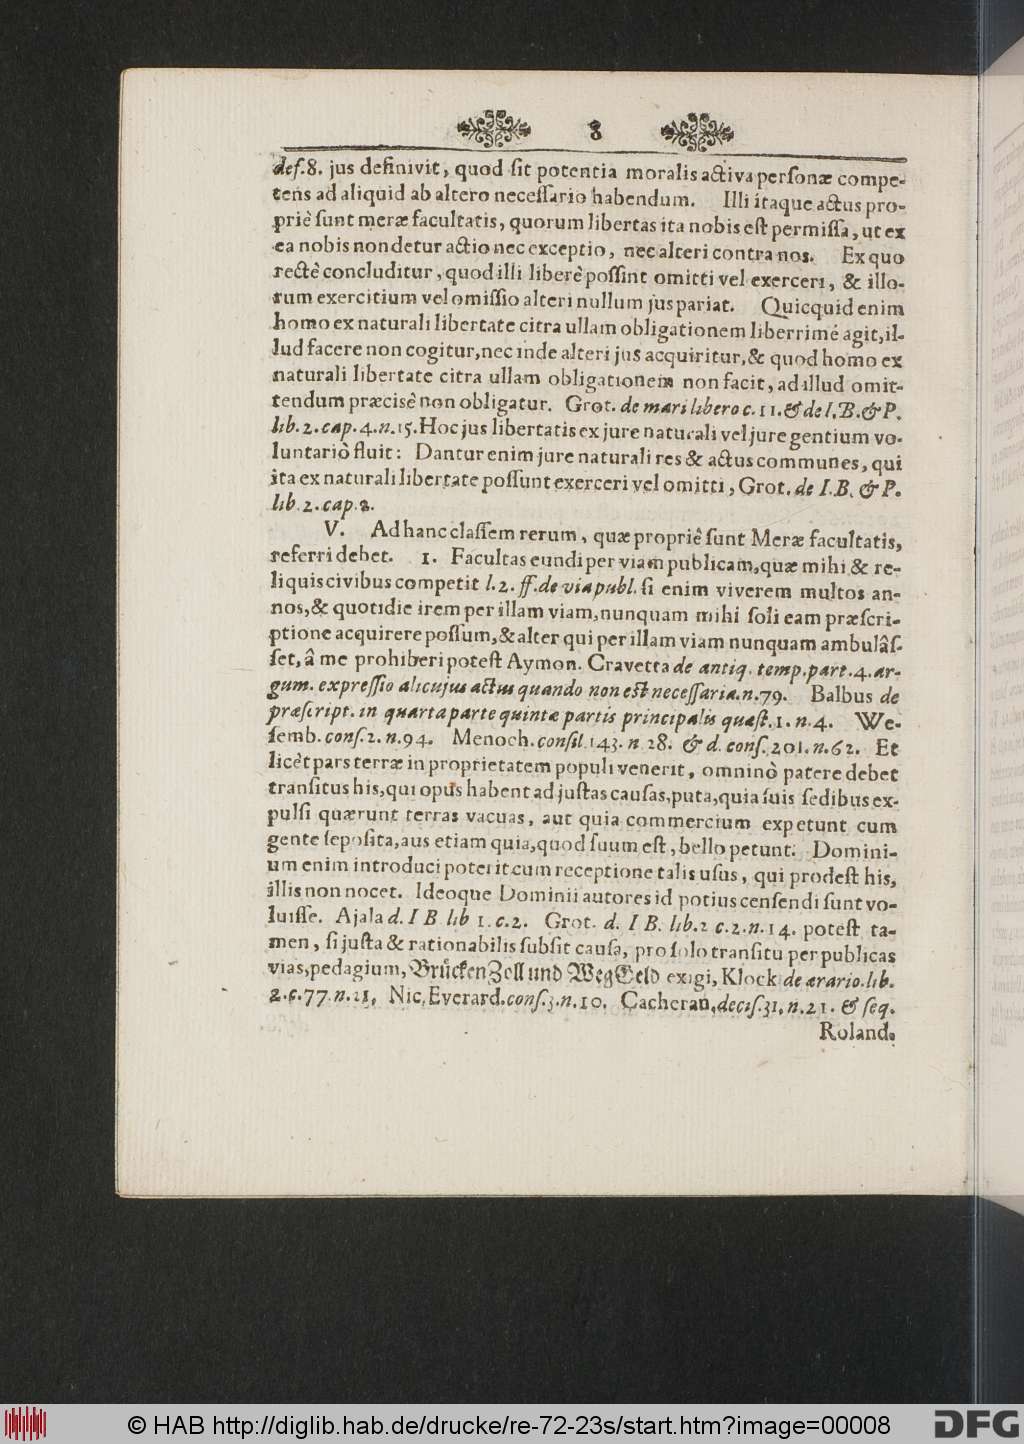 8
def. 8. jus definivit, quod ſit potentia moralis activa perſonæ compe-
tens ad aliquid ab altero neceſſario habendum. Illi itaque actus pro-
priè ſunt meræ facultatis, quorum libertas ita nobis eſt permiſſa, ut ex
ea nobis non detur actio nec exceptio, nec alteri contra nos. Ex quo
rectè concluditur, quod illi liberè poſſint omitti vel exerceri, & illo-
rum exercitium vel omiſſio alteri nullum jus pariat. Quicquid enim
homo ex naturali libertate citra ullam obligationem liberrimé agit, il-
lud facere non cogitur, nec inde alteri jus acquiritur, & quod homo ex
naturali libertate citra ullam obligationem non facit, ad illud omit-
tendum præcisè non obligatur. Grot. de mari libero c. 11. & de I. B. & P.
lib. 2. cap. 4. n. 15. Hoc jus libertatis ex jure naturali vel jure gentium vo-
luntariò fluit: Dantur enim jure naturali res & actus communes, qui
ita ex naturali libertate poſſunt exerceri vel omitti, Grot. de I. B. & P.
lib. 2. cap. 2.
V. Ad hanc claſſem rerum, quæ propriê ſunt Meræ facultatis,
referri debet. 1. Facultas eundi per viam publicam, quæ mihi & re-
liquis civibus competit l. 2. ff. de via publ. ſi enim viverem multos an-
nos, & quotidie irem per illam viam, nunquam mihi ſoli eam præſcri-
ptione acquirere poſſum, & alter qui per illam viam nunquam ambulâſ-
ſet, â me prohiberi poteſt Aymon. Cravetta de antiq. temp. part. 4. ar-
gum. expreſſio alicujus actus quando non eſt neceſſaria. n. 79. Balbus de
præſcript. in quarta parte quintæ partis principalis quæſt. 1. n. 4. We-
ſemb. conſ. 2. n. 94. Menoch. conſil. 143. n. 28. & d. conſ. 201. n. 62. Et
licèt pars terræ in proprietatem populi venerit, omninò patere debet
tranſitus his, qui opus habent ad juſtas cauſas, puta, quia ſuis ſedibus ex-
pulſi quærunt terras vacuas, aut quia commercium expetunt cum
gente ſepoſita, aus etiam quia, quod ſuum eſt, bello petunt. Domini-
um enim introduci poterit cum receptione talis uſus, qui prodeſt his,
illis non nocet. Ideoque Dominii autores id potius cenſendi ſunt vo-
luiſſe. Ajala d. I B lib 1. c. 2. Grot. d. I B. lib. 2 c. 2. n. 14. poteſt ta-
men, ſi juſta & rationabilis ſubſit cauſa, pro ſolo tranſitu per publicas
vias, pedagium, BrückenZoll und WegGeld exigi, Klock de ærario. lib.
2. c. 77. n. 21, Nic. Everard. conſ. 3. n. 10. Cacheran. deciſ. 31. n. 21. & ſeq.
Roland.
© HAB http://diglib.hab.de/drucke/re-72-23s/start.htm?image=00008
DFG